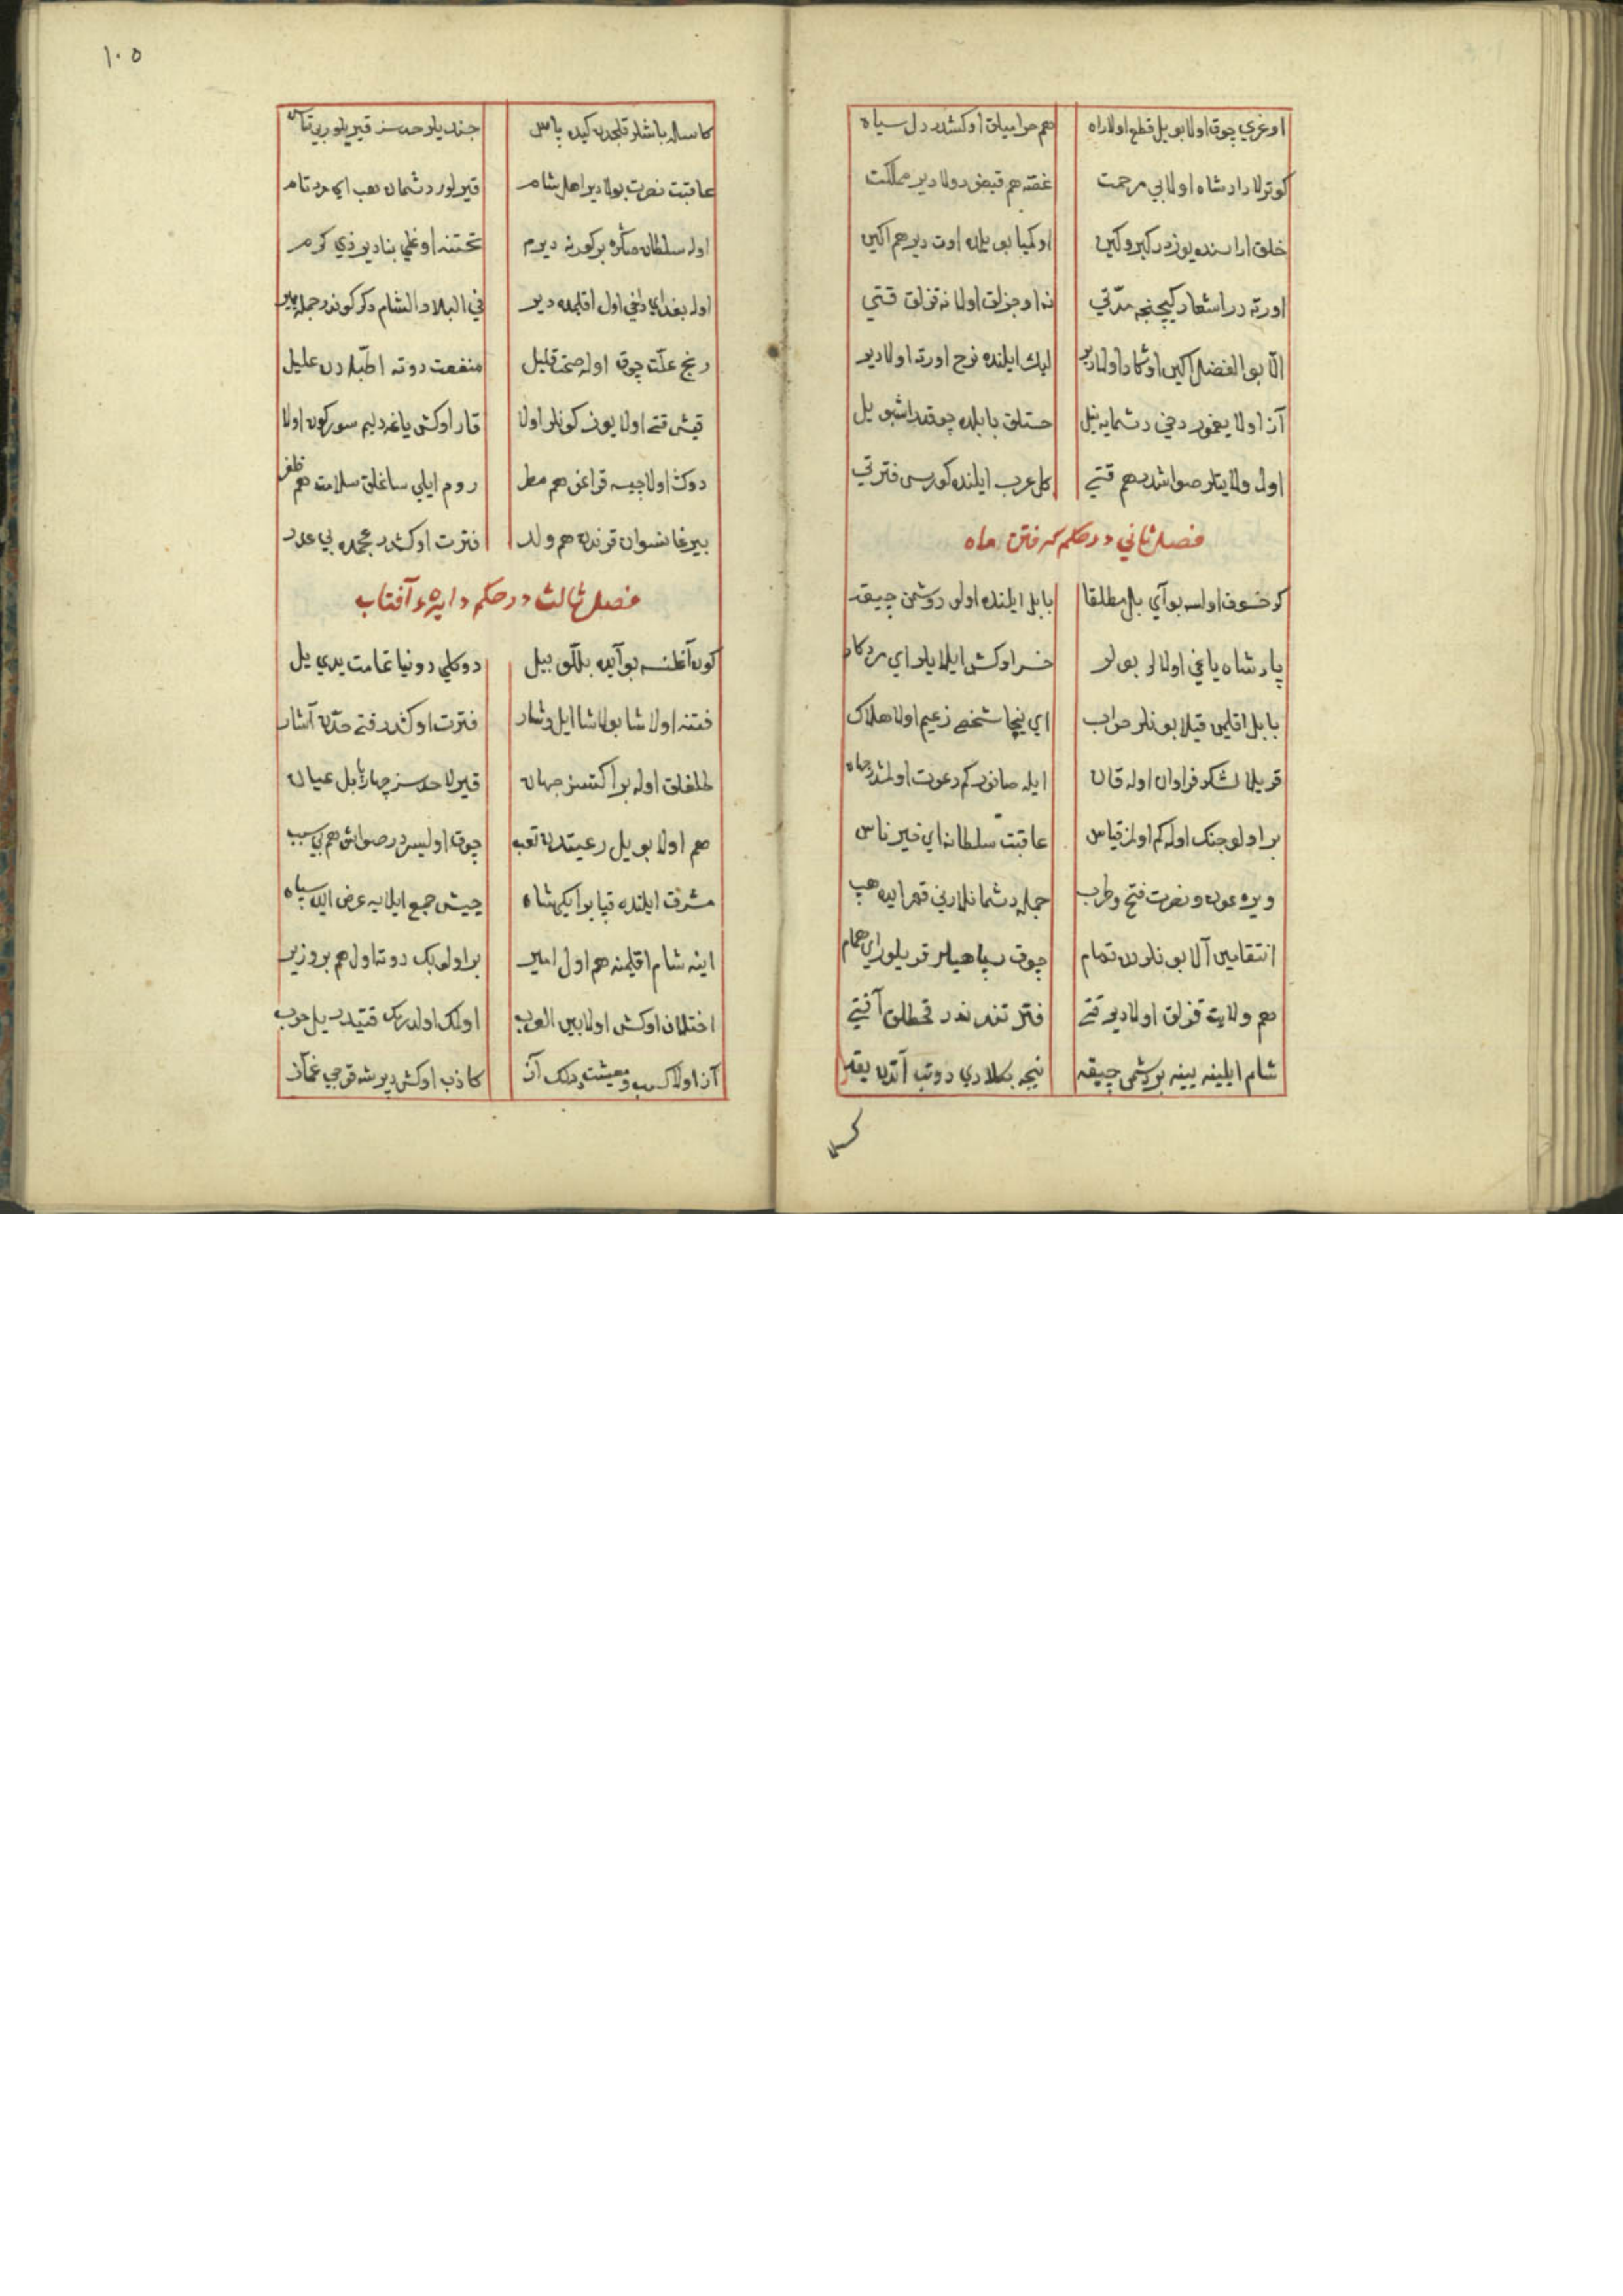 اوغري چوق اولا بو ييل قطع اولا راه هم حراميلق اوكشدر دل سياه
كوترلا داد شاه اولا بي مرحمت غصّه هم قبض دولا دير مملكت
خلق اراسنده يوزدر كبر وكين اوكيا بو ييلده اوت دير هم اكين
اورته در اسعار كيچنجه مدّتي نه اوجزلق اولا نه قزلق قتي
الّا بو الفضل اكين اولا دير ليك ايلنده نرخ اورته اولا دير
آز اولا يغمور دخي دشمايه نيل خستلق بابلده چوقدر اشبو ييل
اول ولايتلر صواشدر هم قتي كل عرب ايلنده كورسن فترتي
فصل ثاني در حكم گرفتن ماه
كر خسوف اولسه بو آي بل مطلقا بابل ايلنده اولو دشمن چيقه
پادشاه ياغي اولالر بونلر
بابل اقليمن قيلا بونلر خراب اي نيچا شخص زعيم اولا هلاك
قريلا لشكر فراوان اوله قان ايله صانور كم دعوت اولمشدر
بر اولو جنك اوله كم اولمز قياس عاقبت سلطانه اي خير ناس
ويره عون و نصرت فتح وطرب جمله دشمانلارني قهر ايده هپ
انتقامين آلا بونلردن تمام چوق سپاهيلر قريلور اي همام
هم ولايت قزلق اولا دير قتي فتنه قحطلق آفتي
شام ايلينه يينه بر دشمن چيقه نيجه بكلاري دوتب آتدن ييقه
١٠٥
كاسه باشلر قلجدن كيده پاس جند يلر حدسز قيريلور بي قياس
عاقبت نصرت بولا دير اهل شام قيريلور دشمان هب اي مرد تام
اوله سلطان صكره بر كورنه ديرم تختنه اوغلي بنا دير ذي كرم
اوله بغداي دخي اول اقليمده دير في البلاد الشام
رنج علّت چوق اوله صحّت قليل منفعت دوته اطبّادن عليل
قيش قتي اولا يوز كونلر اولا قار اوكش ياغه ديم سوركون اولا
دوكش اولا چيسه قراغو هم مطر روم ايلي ساغلق سلامت هم ظفر
بيرغا نسوان قرندن هم ولد فترت اوكشدر عجمده بي عدد
فصل ثالث در حكم دايرهء آفتاب
كون آغلنسه بو آيده بللّو بيل دوكلي دونيا غامت يدي ييل
فتنه اولا شا بولاشا ايل وشار فترت اوكشدر قتي حدّن آشار
ظلملق اوله بر اكتسز جهان قيريلا حدسز چهارپا بل عيان
هم اولا بو ييل رعيتدن تعب چوق اوليسردر صواش هم بي سبب
مشرق ايلنده قپا بو ايكي شاه جيش جمع ايلايه عرض ايده سپاه
اينه شام اقليمنه هم اول امير بر اولو بك دوتا اول هم بر وزير
اختلاف اوكش اولا بين العرب اولك اولدرمك قتيدر ييل حرب
آز اولا كسب ومعيشت آز كاذب اوكش دير غمّاز